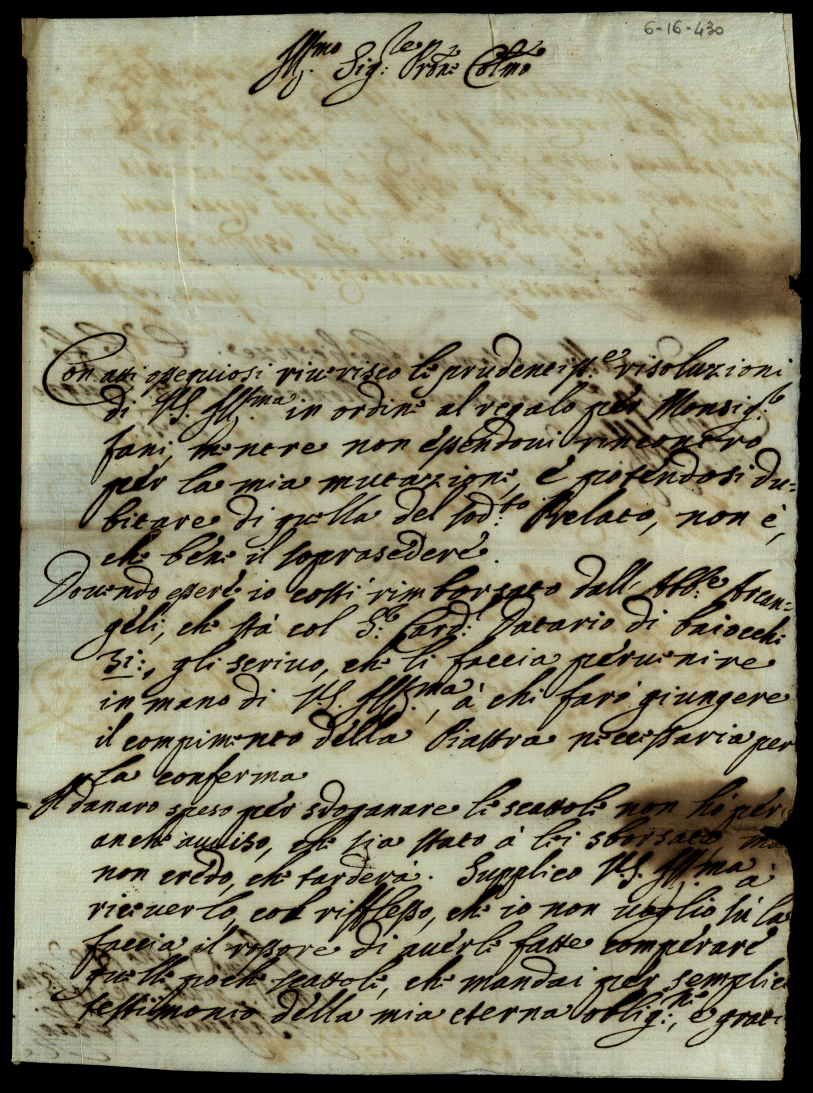 6-16-430
Ill.mo Sig.re Pron.e Col.mo
Con atti ossequiosi riverisco le prudentiss.e risoluzioni
di V.S. Ill.ma in ordine al regalo per Monsig.r
fani, mentre non essendovi rincontro
per la mia mutazione, e potendosi du=
bitare di quella del sod.to Prelato, non è,
che bene il soprasedere.
Dovendo essere io costì rimborsato dall' Abb.e Arcan=
geli, che stà col S.r Card.l Datario di baiocchi
31:, gli scrivo, che li faccia pervenire
in mano di V.S. Ill.ma, à chi farò giungere
il compimento della Piastra necessaria per
la conferma
Il danaro speso per sdoganare le scattole non hò per
anche avviso, che sia stato à lei sborsato ma
non credo, che tarderà. Supplico V.S. Ill.ma à
riceverlo, col riflesso, che io non voglio sù la
faccia il rossore di averle fatte comperare
quelle poche scattole, che mandai per semplice
testimonio della mia eterna oblig.ne, e grati